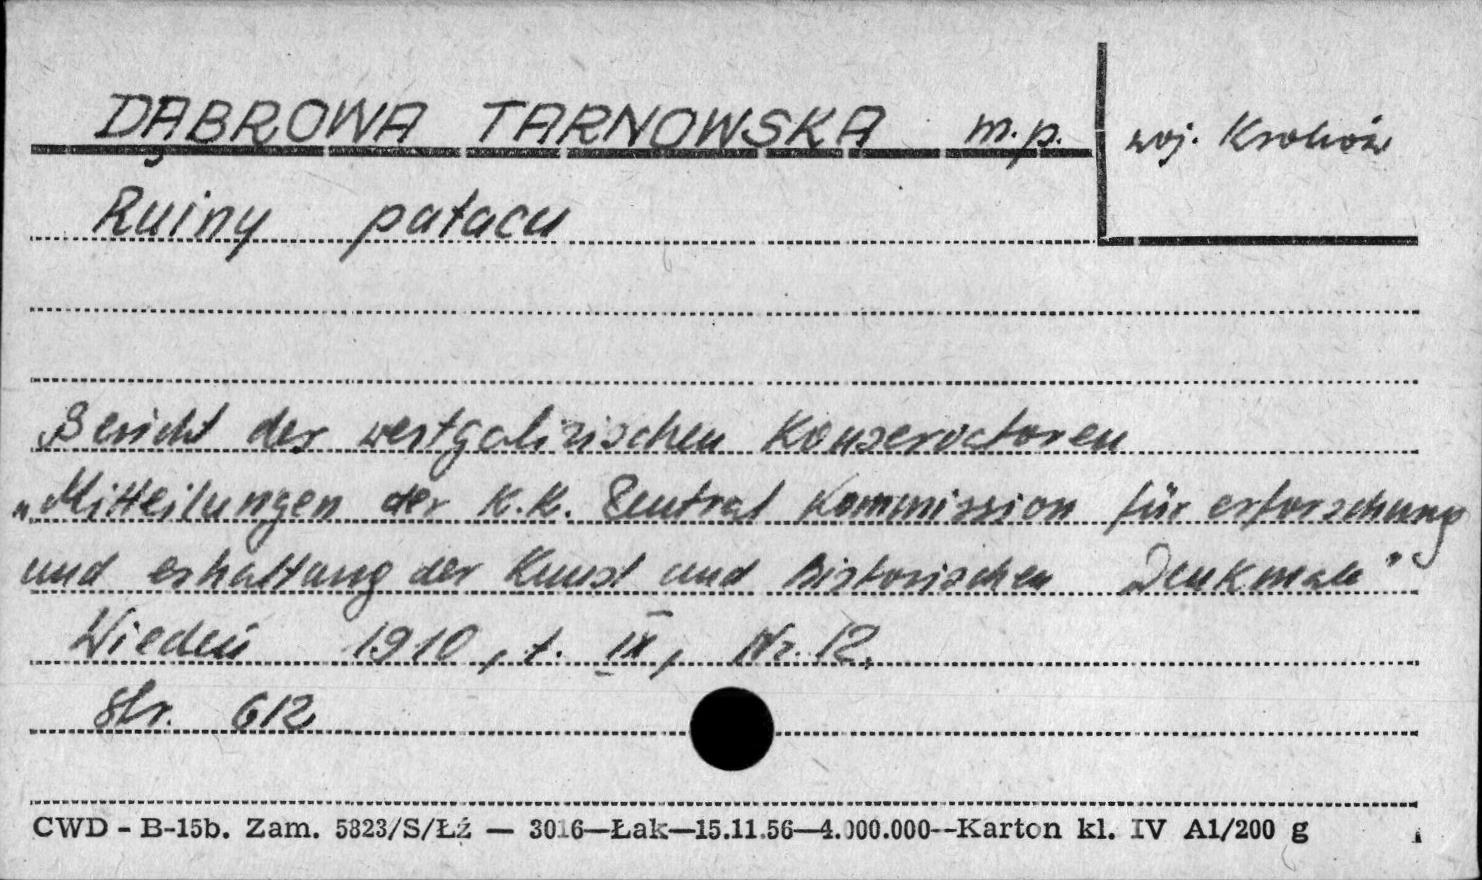 DĄBROWA TARNOWSKA m.p.
woj. Kraków
Ruiny pałacu
Bericht der westgalizischen Konservatoren
„Mitteilungen der K.K. Zentral Kommission für erforschung
und erhaltung der Kunst und historischen Denkmale"
Wiedeń 1910, t. IX, Nr. 12,
str. 612
CWD - B-15b. Zam. 5823/S/Łź — 3016—Łak—15.11.56—4.000.000--Karton kl. IV A1/200 g